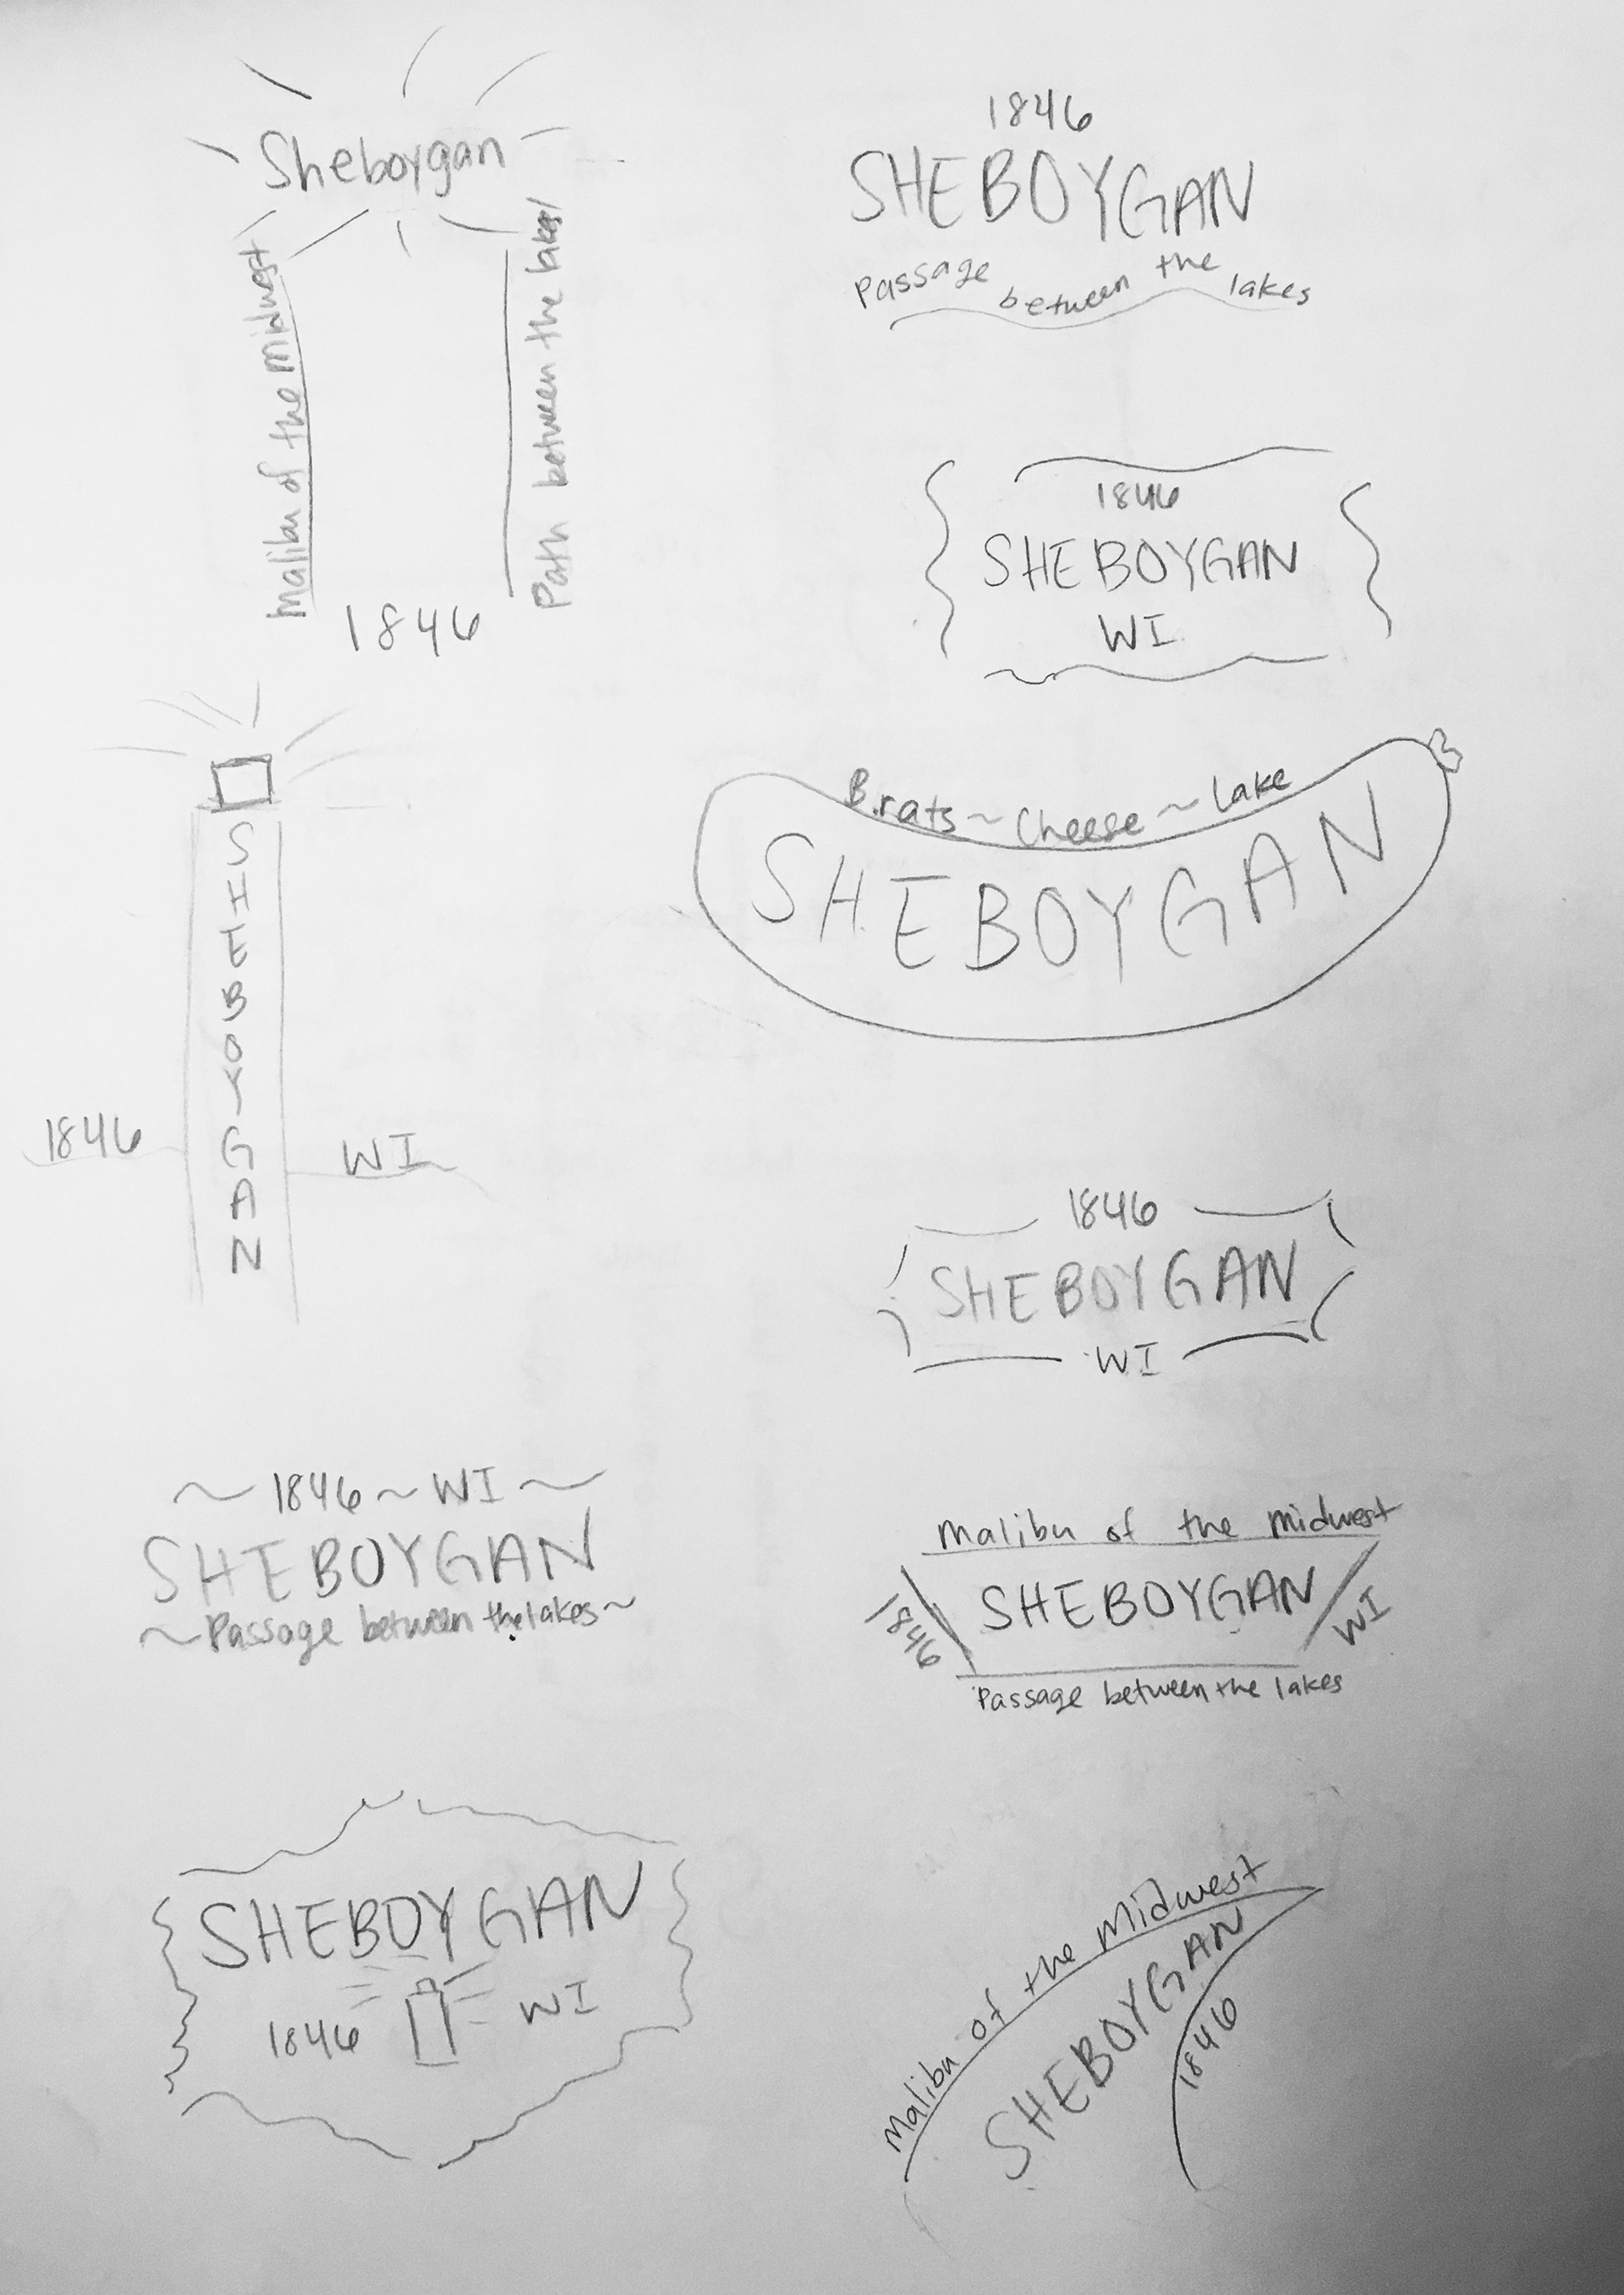 Sheboygan
Malibu of the Midwest
Path between the lakes
1846
SHEBOYGAN
1846
WI
~ 1846 ~ WI ~
SHEBOYGAN
~ Passage between the lakes ~
SHEBOYGAN
1846
WI
1846
SHEBOYGAN
Passage between the lakes
1846
SHEBOYGAN
WI
Brats ~ Cheese ~ Lake
SHEBOYGAN
1846
SHEBOYGAN
WI
Malibu of the Midwest
1846
SHEBOYGAN
WI
Passage between the lakes
Malibu of the Midwest
SHEBOYGAN
1846